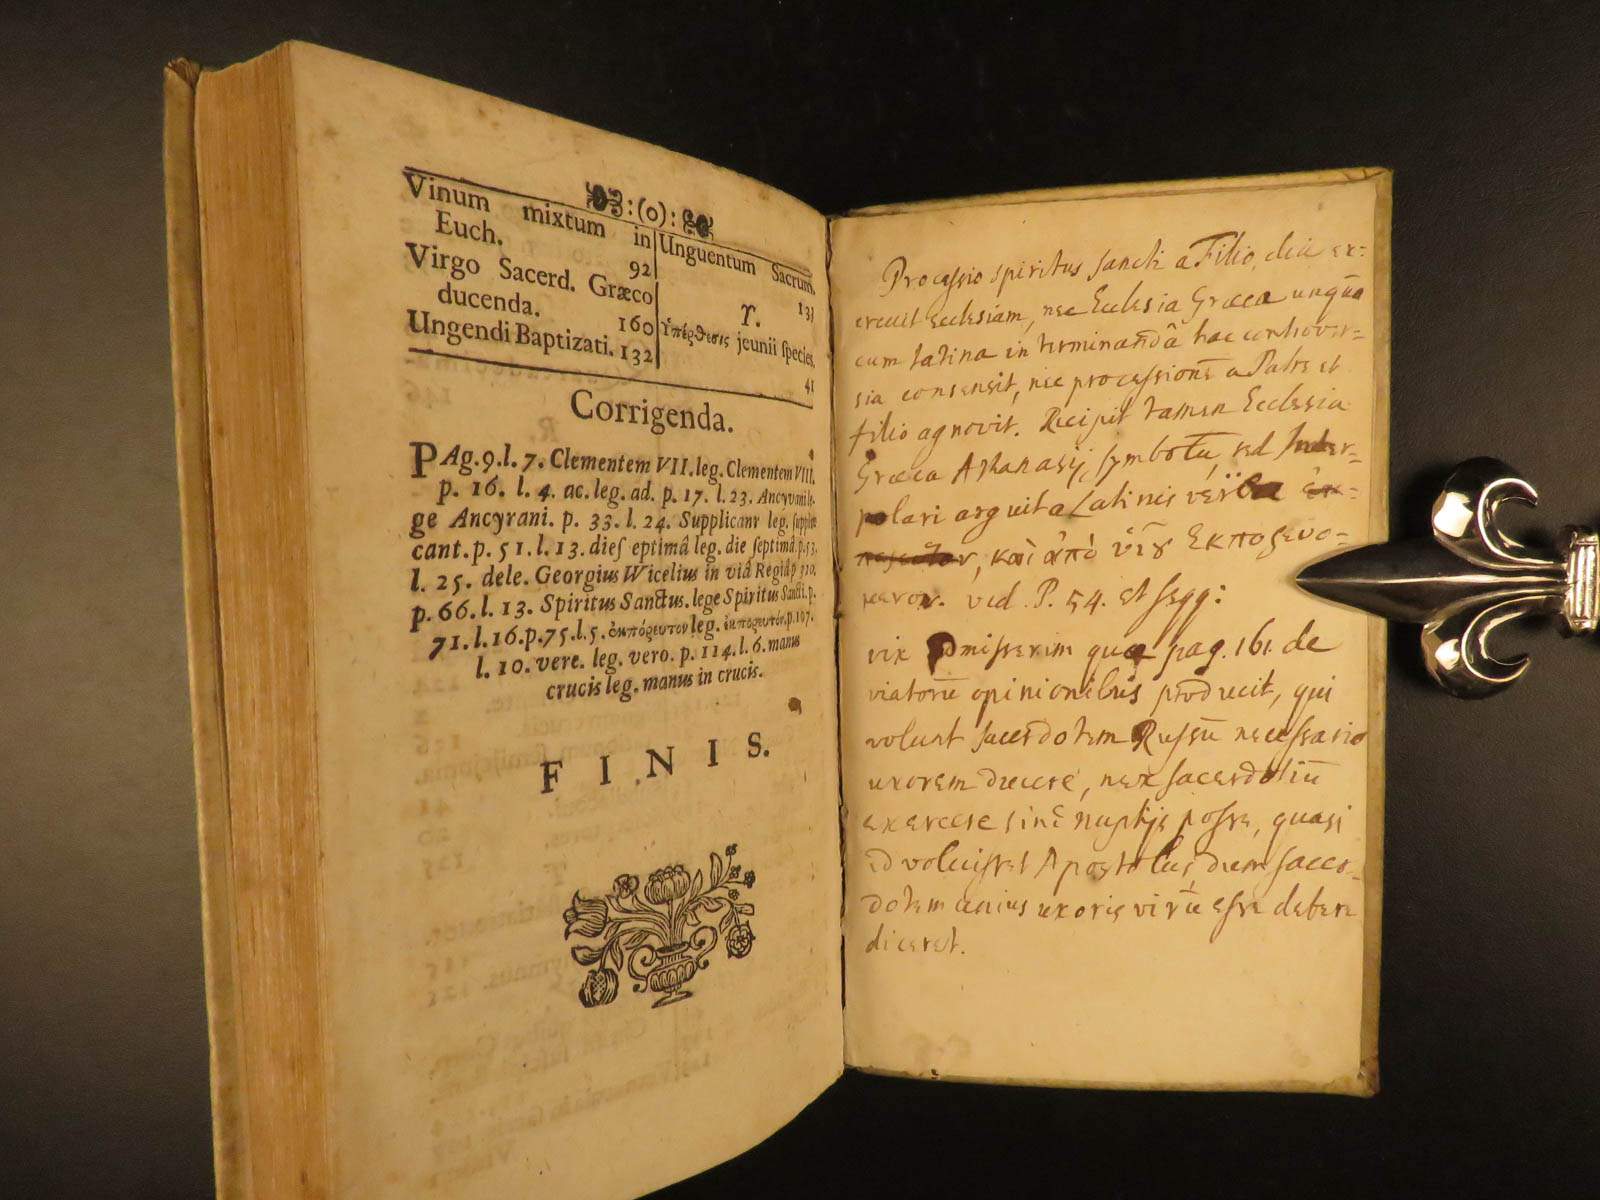 :(o):
Vinum mixtum in
Euch. 92
Virgo Sacerd. Græco
ducenda. 160
Ungendi Baptizati. 132
Unguentum Sacrum.
133
ϒ.
Ὑπέρθεσις jeunii species.
41
Corrigenda.
PAg. 9. l. 7. Clementem VII. leg. Clementem VIII.
p. 16. l. 4. ac. leg. ad. p. 17. l. 23. Ancyvani le-
ge Ancyrani. p. 33. l. 24. Supplicanr leg. suppli-
cant. p. 51. l. 13. dies eptimâ leg. die septimâ. p. 53.
l. 25. dele. Georgius Wicelius in viâ Regiâ p. 310.
p. 66. l. 13. Spiritus Sanctus. lege Spiritus Sancti. p.
71. l. 16. p. 75. l. 5. leg. ἐκπόρευτον. p. 107.
l. 10. vere. leg. vero. p. 114. l. 6. manus
crucis leg. manus in crucis.
FINIS.
Processio spiritus sancti a Filio, diu ex-
ercuit Ecclesiam, nec Ecclesia Græca unquā
cum latina in terminandâ hac controver-
sia consensit, nec processionē a Patre et
filio agnovit. Recipit tamen Ecclesia
Græca Athanasij symbolū, sed Inter-
polari arguit a Latinis
, καὶ ἀπὸ ὑιȣ͂ εκπορευο-
μενον. vid. P. 54. et seqq:
vix admisserim quæ pag. 161. de
viatorū opinionibus producit, qui
volunt sacerdotem Russū necessario
uxorem ducere, nec sacerdotiū
exercere sine nuptijs posse, quasi
id voluisset Apostolus dum sacer-
dotem unius uxoris virū esse debere
diceret.